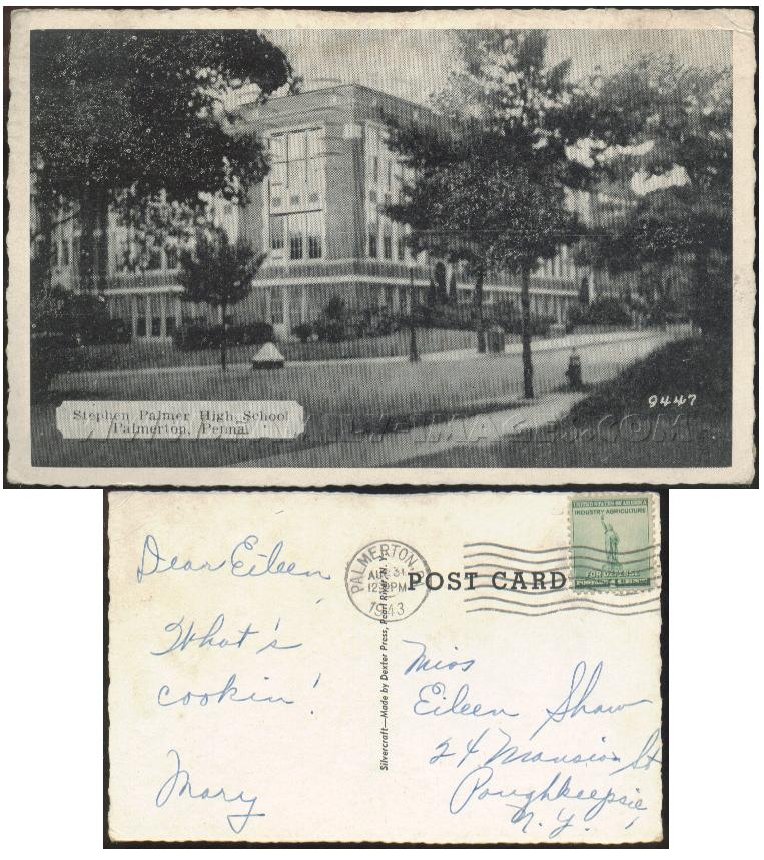 Stephen Palmer High School
Palmerton, Penna.
9447
WWW. FAMILY-IMAGES.COM
Dear Eileen,
What's
cookin!
Mary
PALMERTON,
AUG 31
12 PM
1943
POST CARD
UNITED STATES OF AMERICA
INDUSTRY AGRICULTURE
FOR DEFENSE
Silvercraft—Made by Dexter Press, Pearl River, N. Y.
Miss
Eileen Shaw
24 Mansion St
Poughkeepsie,
N.Y.